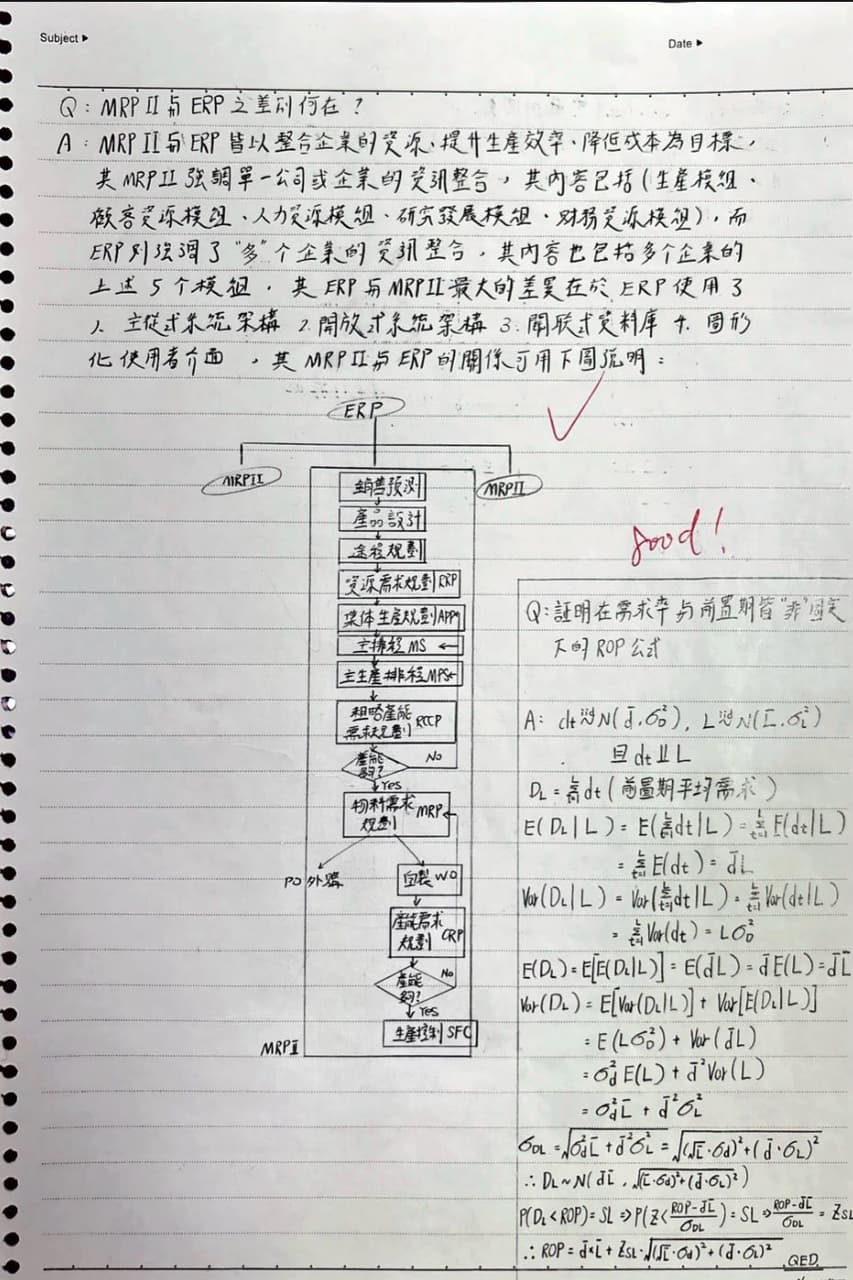 Subject ▶
Date ▶
Q：MRP II 與 ERP 之差別何在？
A：MRP II 與 ERP 皆以整合企業的資源、提升生產效率、降低成本為目標，
其 MRP II 強調單一公司或企業的資訊整合，其內容包括(生產模組、
顧客資源模組、人力資源模組、研究發展模組、財務資源模組)，而
ERP 則強調了 "多" 個企業的資訊整合，其內容也包括多個企業的
上述 5 个模組，其 ERP 與 MRP II 最大的差異在於 ERP 使用了
1. 主從式系統架構 2. 開放式系統架構 3. 關聯式資料庫 4. 圖形
化使用者介面，其 MRP II 與 ERP 的關係可用下圖說明：
ERP
MRPII
MRPII
銷售預測
產品設計
途程規劃
資源需求規劃 RRP
集体生產規劃 APP
主排程 MS
主生產排程 MPS
粗略產能
需求規劃 RCCP
產能
夠？
No
Yes
物料需求
規劃 MRP
PO 外購
自製 WO
產能需求
規劃 CRP
產能
夠？
No
Yes
生產控制 SFC
MRPII
good!
Q：証明在需求率與前置期皆"非"固定
下的 ROP 公式
A： dt iid~ N(d̄, σ_D²), L iid~ N(L̄, σ_L²)
且 dt ⫫ L
D_L = Σ_{t=1}^{L} dt (前置期平均需求)
E(D_L|L) = E(Σ_{t=1}^{L} dt|L) = Σ_{t=1}^{L} E(dt|L)
= Σ_{t=1}^{L} E(dt) = d̄L
Var(D_L|L) = Var(Σ_{t=1}^{L} dt|L) = Σ_{t=1}^{L} Var(dt|L)
= Σ_{t=1}^{L} Var(dt) = Lσ_D²
E(D_L) = E[E(D_L|L)] = E(d̄L) = d̄E(L) = d̄L̄
Var(D_L) = E[Var(D_L|L)] + Var[E(D_L|L)]
= E(Lσ_D²) + Var(d̄L)
= σ_d² E(L) + d̄² Var(L)
= σ_d² L̄ + d̄² σ_L²
σ_DL = √(σ_d² L̄ + d̄² σ_L²) = √((√L̄·σ_d)² + (d̄·σ_L)²)
∴ D_L ~ N(d̄L̄, √((√L̄·σ_d)² + (d̄·σ_L)²))
P(D_L < ROP) = SL ⇒ P(Z < (ROP - d̄L̄)/σ_DL) = SL ⇒ (ROP - d̄L̄)/σ_DL = Z_SL
∴ ROP = d̄×L̄ + Z_SL·√((√L̄·σ_d)² + (d̄·σ_L)²) QED.